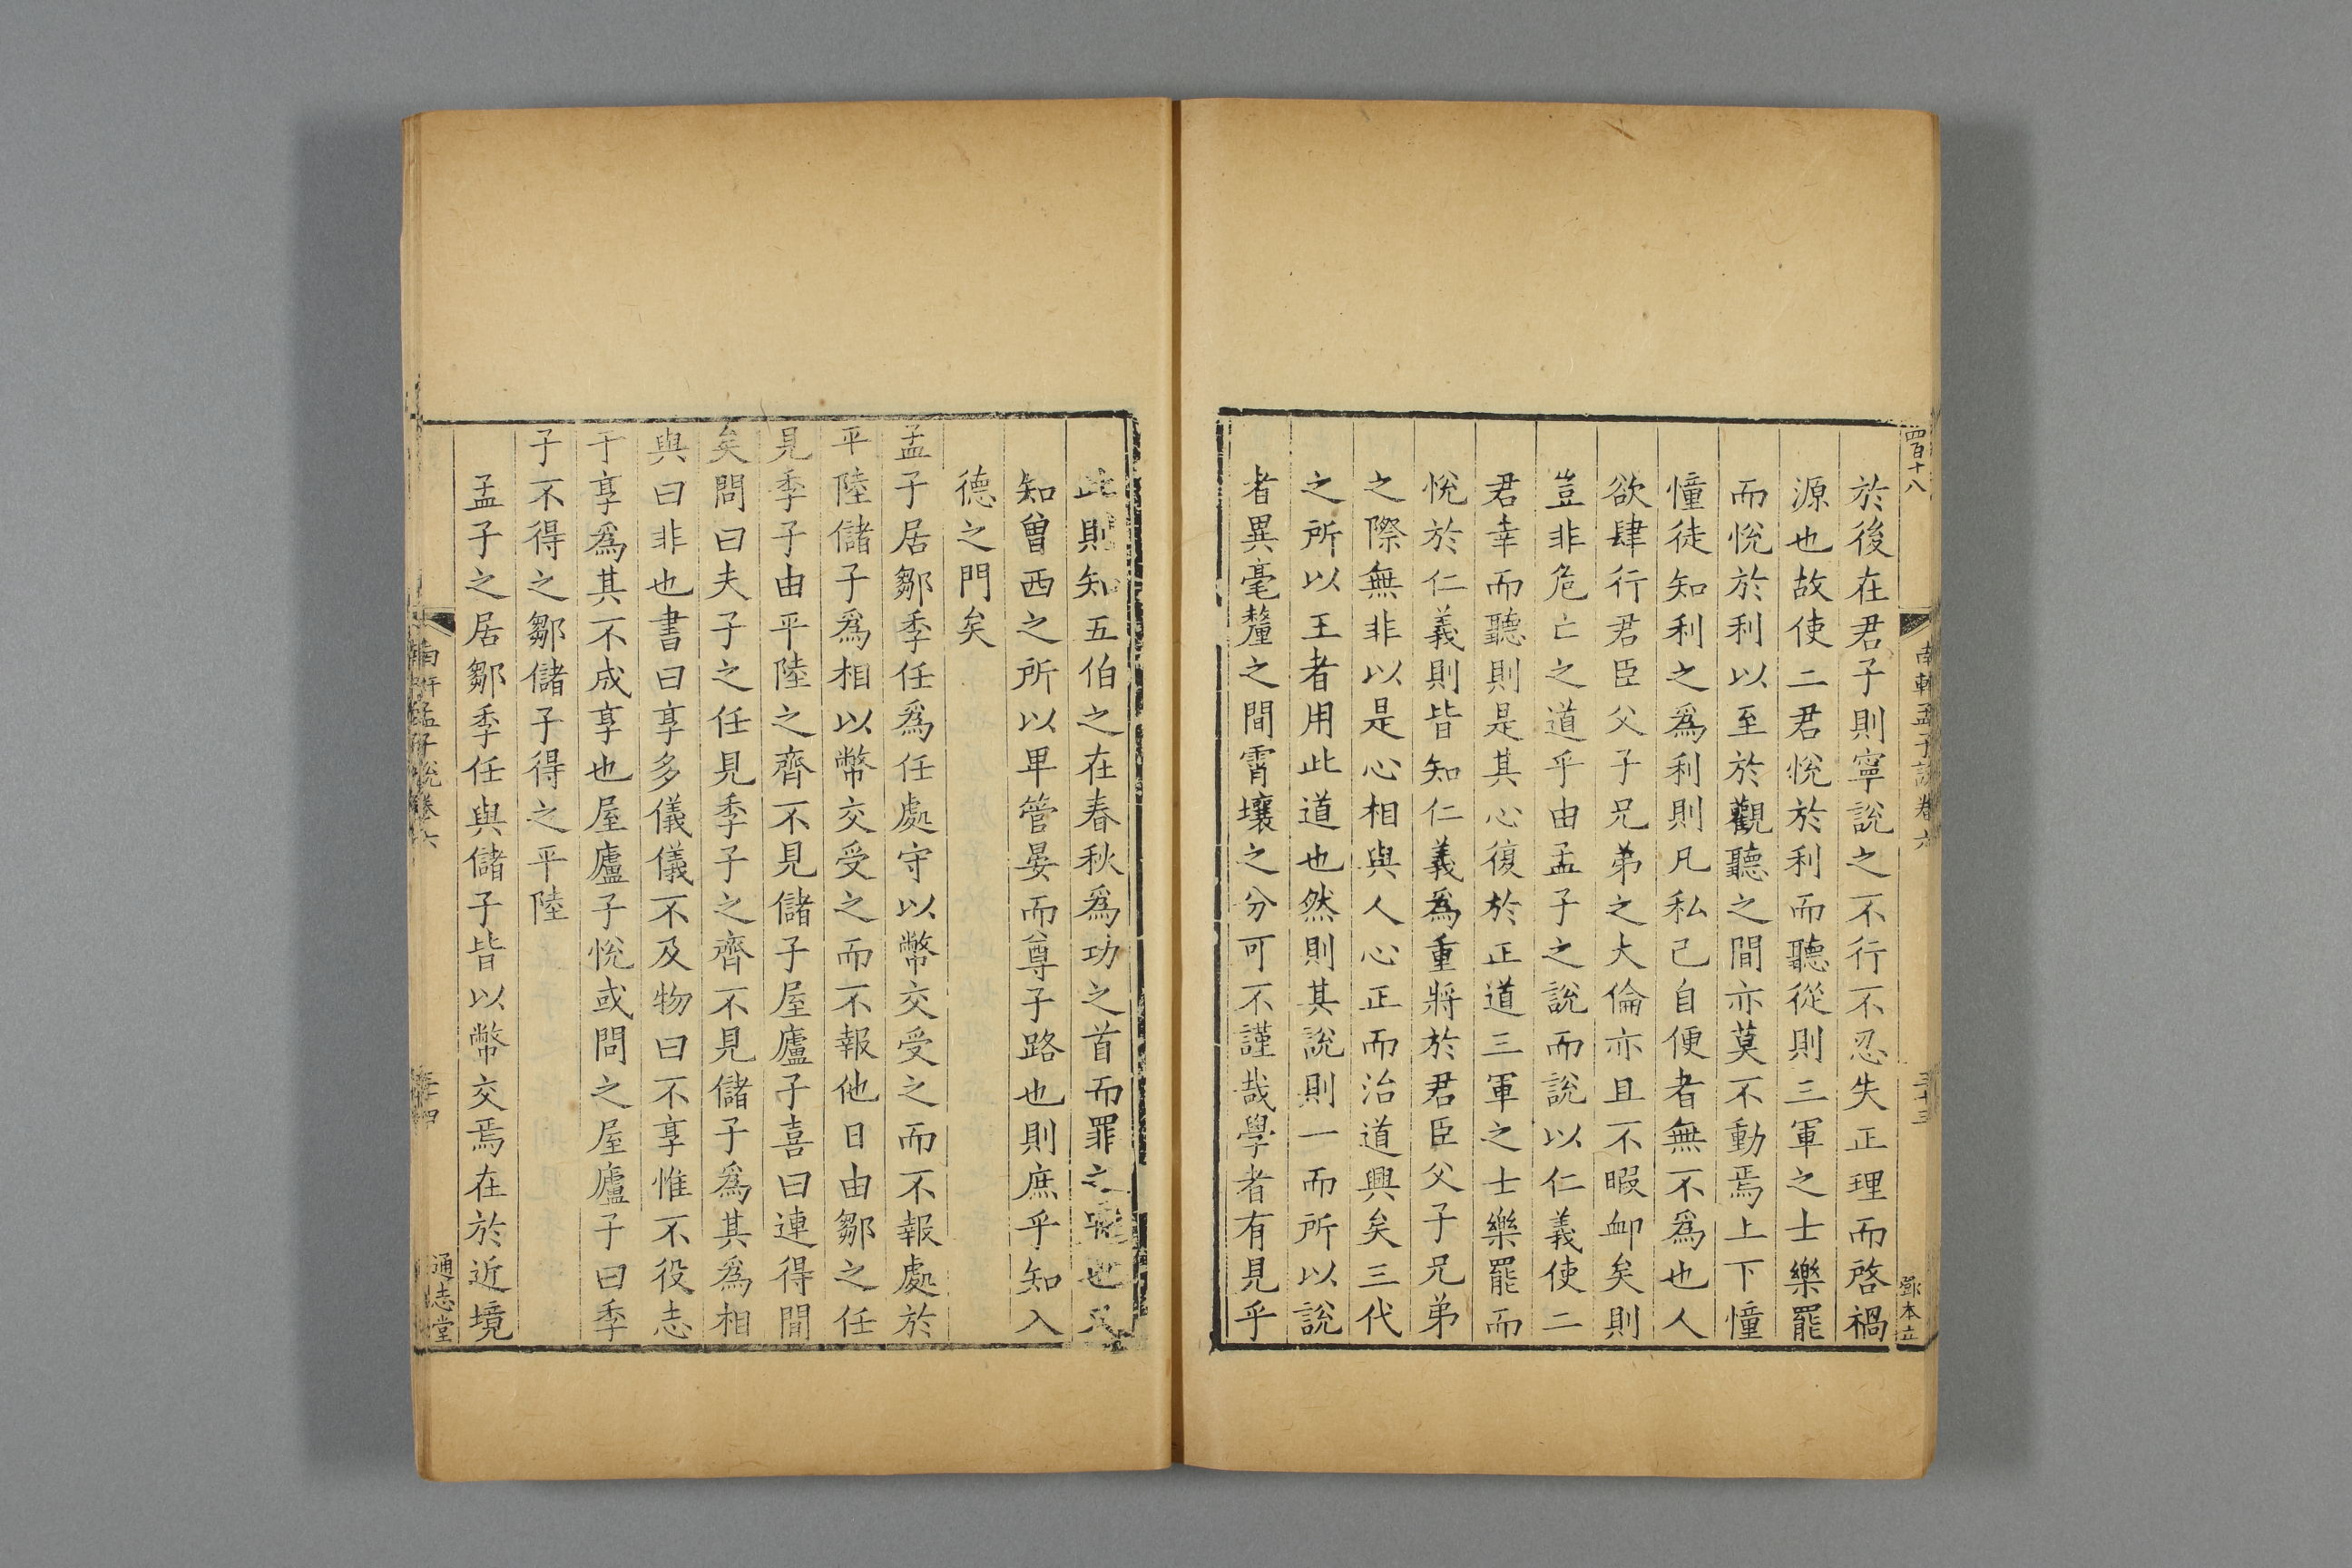 四百十八
南軒孟子說卷六
三十三
鄧本立
於後在君子則寧說之不行不忍失正理而啓禍
源也故使二君悅於利而聽從則三軍之士樂罷
而悅於利以至於觀聽之間亦莫不動焉上下憧
憧徒知利之爲利則凡私己自便者無不爲也人
欲肆行君臣父子兄弟之大倫亦且不暇衈矣則
豈非危亡之道乎由孟子之說而說以仁義使二
君幸而聽則是其心復於正道三軍之士樂罷而
悅於仁義則皆知仁義爲重將於君臣父子兄弟
之際無非以是心相與人心正而治道興矣三代
之所以王者用此道也然則其說則一而所以說
者異毫釐之間霄壤之分可不謹哉學者有見乎
此則知五伯之在春秋爲功之首而罪之魁也又
知曾西之所以卑管晏而尊子路也則庶乎知入
德之門矣
孟子居鄒季任爲任處守以幣交受之而不報處於
平陸儲子爲相以幣交受之而不報他日由鄒之任
見季子由平陸之齊不見儲子屋廬子喜曰連得間
矣問曰夫子之任見季子之齊不見儲子爲其爲相
與曰非也書曰享多儀儀不及物曰不享惟不役志
于享爲其不成享也屋廬子悅或問之屋廬子曰季
子不得之鄒儲子得之平陸
孟子之居鄒季任與儲子皆以幣交焉在於近境
南軒孟子說卷六
三十四
通志堂